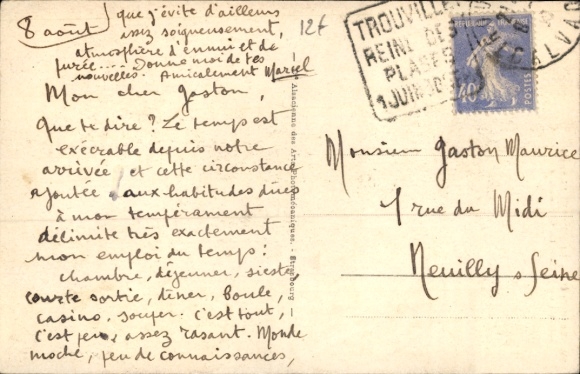 8 août
Mon cher Gaston,
Que te dire ? Le temps est
exécrable depuis notre
arrivée et cette circonstance
ajoutée aux habitudes dûes
à mon tempérament
délimite très exactement
mon emploi du temps :
chambre, déjeuner, sieste,
courte sortie, dîner, boule,
casino, souper. C'est tout,
c'est peu, assez rasant. Monde
moche, peu de connaissances,
que j'évite d'ailleurs
assez soigneusement,
atmosphère d'ennui et de
purée.... Donne moi de tes
nouvelles. Amicalement Marcel
12€
TROUVILLE
REINE DES
PLAGES
1 JUIN
40c
POSTES
Monsieur Gaston Maurice
1 rue du Midi
Neuilly s Seine
Alsacienne des Arts Photomécaniques. - Strasbourg